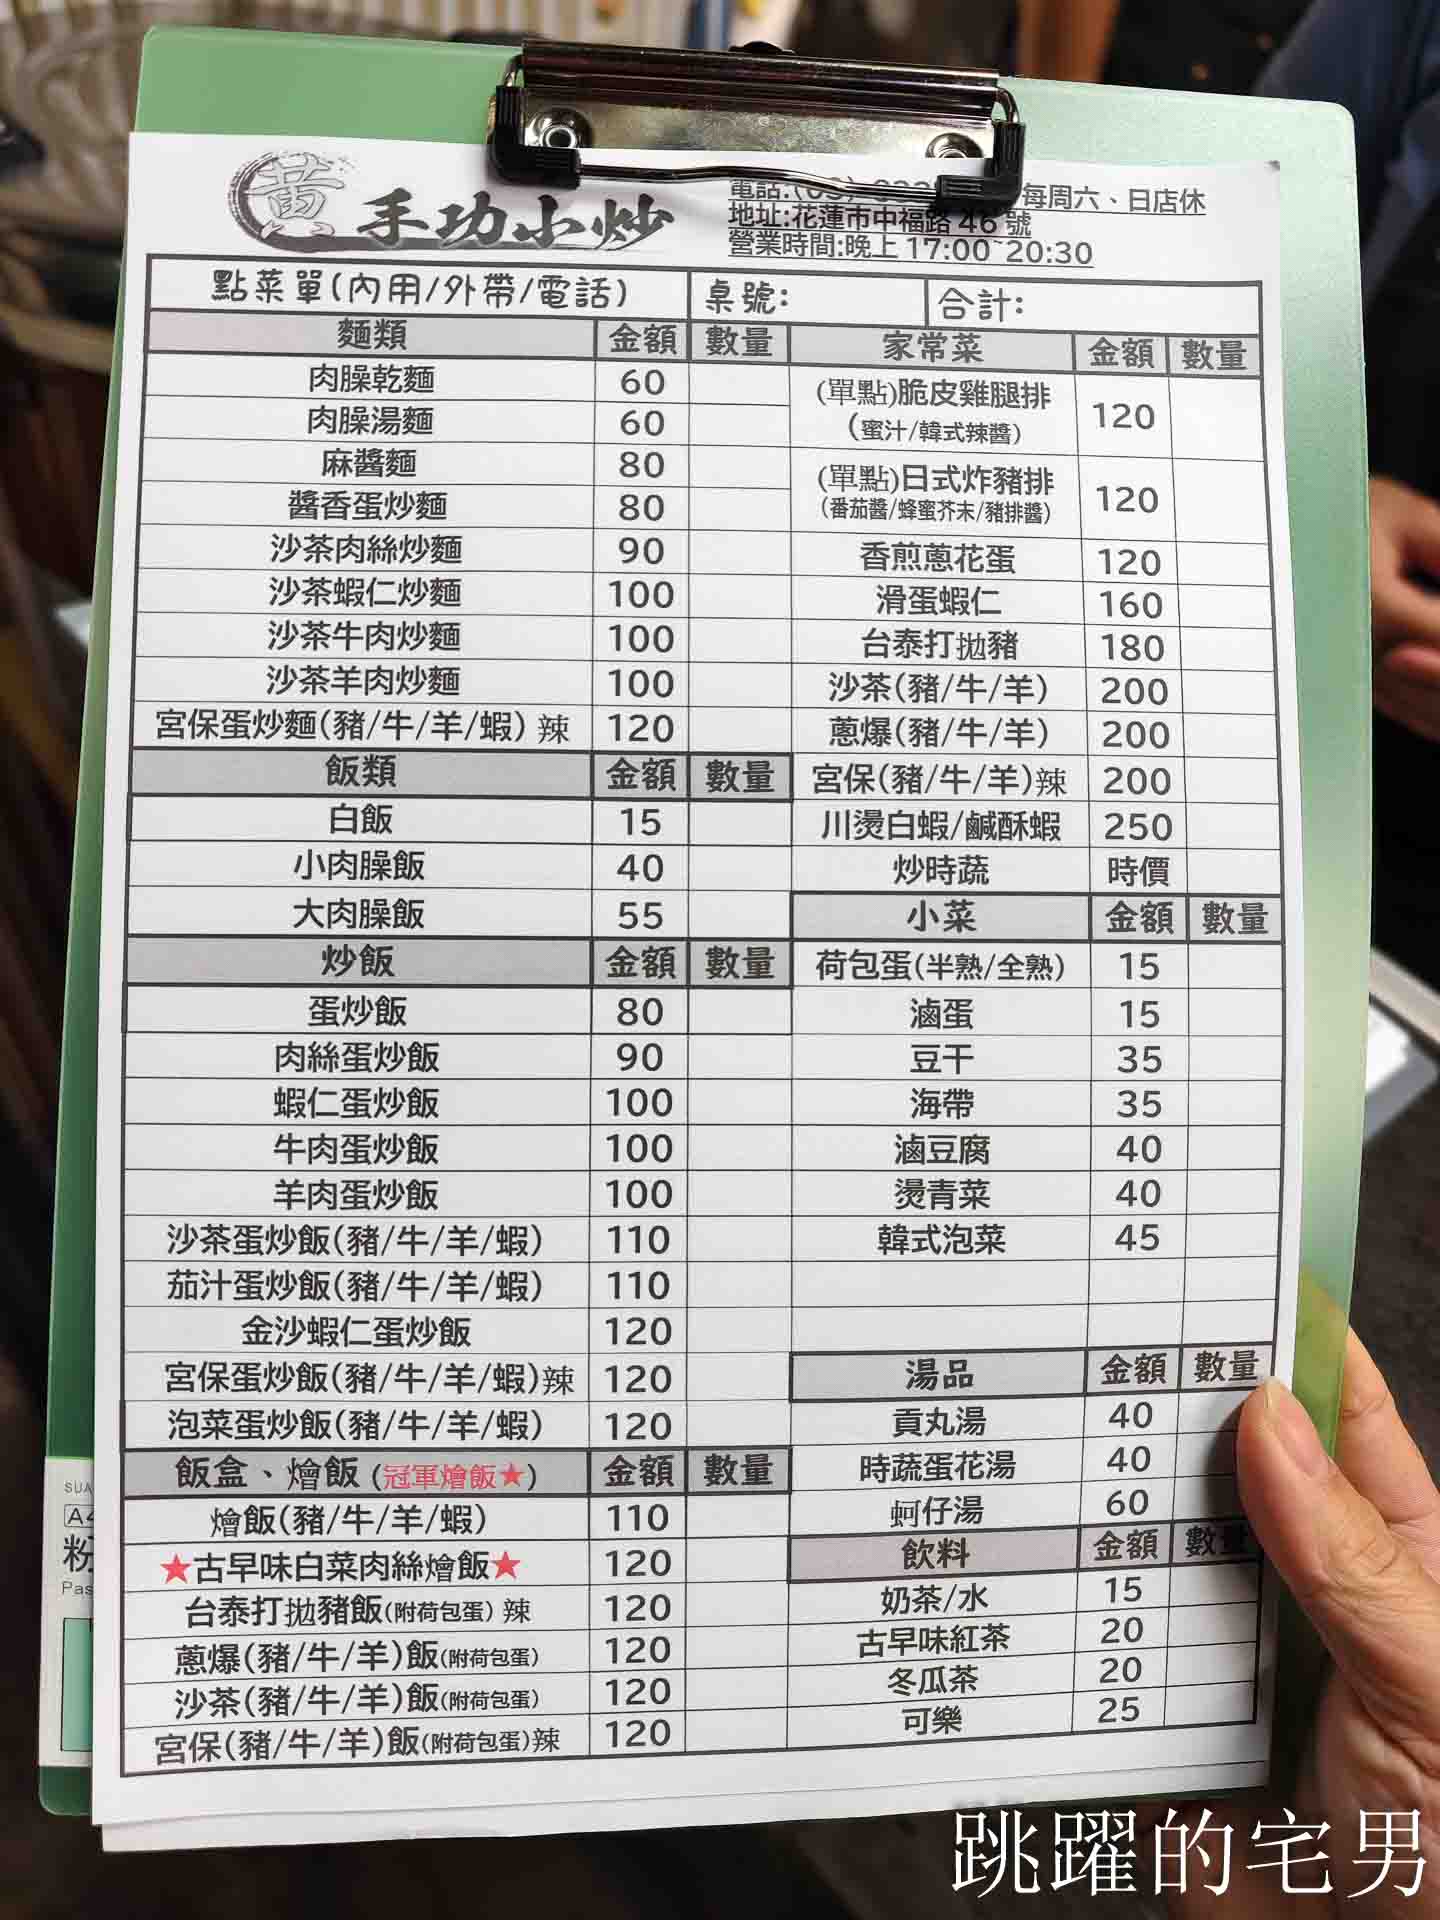 黃 手功小炒
電話:(03) 每周六、日店休
地址:花蓮市中福路 46 號
營業時間:晚上 17:00~20:30
點菜單(內用/外帶/電話) 桌號: 合計:
麵類 金額 數量
肉臊乾麵 60
肉臊湯麵 60
麻醬麵 80
醬香蛋炒麵 80
沙茶肉絲炒麵 90
沙茶蝦仁炒麵 100
沙茶牛肉炒麵 100
沙茶羊肉炒麵 100
宮保蛋炒麵(豬/牛/羊/蝦) 辣 120
飯類 金額 數量
白飯 15
小肉臊飯 40
大肉臊飯 55
炒飯 金額 數量
蛋炒飯 80
肉絲蛋炒飯 90
蝦仁蛋炒飯 100
牛肉蛋炒飯 100
羊肉蛋炒飯 100
沙茶蛋炒飯(豬/牛/羊/蝦) 110
茄汁蛋炒飯(豬/牛/羊/蝦) 110
金沙蝦仁蛋炒飯 120
宮保蛋炒飯(豬/牛/羊/蝦)辣 120
泡菜蛋炒飯(豬/牛/羊/蝦) 120
飯盒、燴飯 (冠軍燴飯★) 金額 數量
燴飯(豬/牛/羊/蝦) 110
★古早味白菜肉絲燴飯★ 120
台泰打拋豬飯(附荷包蛋) 辣 120
蔥爆(豬/牛/羊)飯(附荷包蛋) 120
沙茶(豬/牛/羊)飯(附荷包蛋) 120
宮保(豬/牛/羊)飯(附荷包蛋)辣 120
家常菜 金額 數量
(單點)脆皮雞腿排 120
(蜜汁/韓式辣醬)
(單點)日式炸豬排 120
(番茄醬/蜂蜜芥末/豬排醬)
香煎蔥花蛋 120
滑蛋蝦仁 160
台泰打拋豬 180
沙茶(豬/牛/羊) 200
蔥爆(豬/牛/羊) 200
宮保(豬/牛/羊)辣 200
川燙白蝦/鹹酥蝦 250
炒時蔬 時價
小菜 金額 數量
荷包蛋(半熟/全熟) 15
滷蛋 15
豆干 35
海帶 35
滷豆腐 40
燙青菜 40
韓式泡菜 45
湯品 金額 數量
貢丸湯 40
時蔬蛋花湯 40
蚵仔湯 60
飲料 金額 數量
奶茶/水 15
古早味紅茶 20
冬瓜茶 20
可樂 25
SUA
A4
粉
Pas
跳躍的宅男